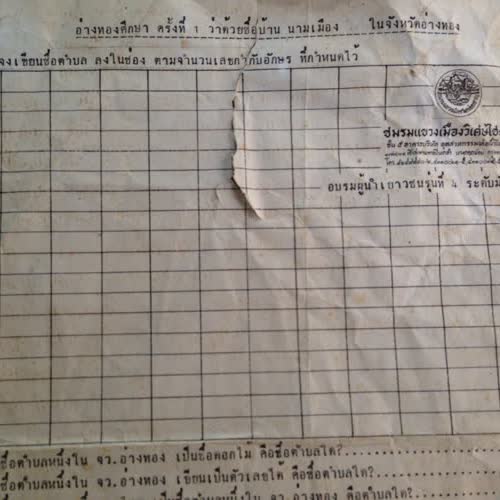 อ่างทองศึกษา ครั้งที่ 1 ว่าด้วยชื่อบ้าน นามเมือง ในจังหวัดอ่างทอง
จงเขียนชื่อตำบล ลงในช่อง ตามจำนวนเลขกำกับอักษร ที่กำหนดไว้
ชมรมแขวงเมืองวิเศษไช
อบรมผู้นำเยาวชนรุ่นที่ 4 ระดับมั
ชื่อตำบลหนึ่งใน จว.อ่างทอง เป็นชื่อดอกไม้ คือชื่อตำบลใด?
ชื่อตำบลหนึ่งใน จว.อ่างทอง เขียนเป็นตัวเลขได้ คือชื่อตำบลใด?